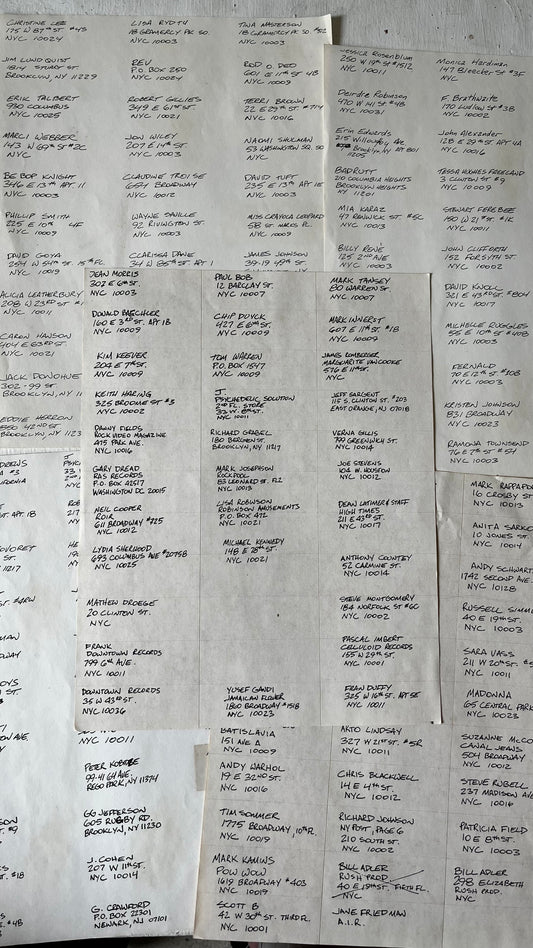 CHRISTINE LEE
175 W 87TH ST #4S
NYC 10024
JIM LUNDQUIST
1814 STUART ST
BROOKLYN, NY 11229
ERIK TALBERT
990 COLUMBUS
NYC 10025
MARCI WEBBER
143 W 69TH ST #2C
NYC
BE BOP KNIGHT
346 E 13TH APT 11
NYC 10003
PHILLIP SMITH
225 E 10TH 4F
NYC 10009
DAVID GOYA
254 W 54TH ST. 15TH FL.
NYC 10019
ALICIA LEATHERBURY
208 W 23RD ST
NYC 10011
CAREN HANSON
404 E 63RD ST.
NYC 10021
JACK DONOHUE
302-99 ST.
BROOKLYN, NY 11
EDDIE HERRON
42ND ST
BROOKLYN, NY 1123
LISA RYDTY
18 GRAMERCY PK SO.
NYC 10003
REV
P.O. BOX 250
NYC 10024
ROBERT GILLIES
349 E 61ST ST.
NYC 10021
JON WILEY
207 E 14TH ST.
NYC 10003
CLAUDINE TROISE
654 BROADWAY
NYC 10012
WAYNE SAVILLE
92 RIVINGTON ST.
NYC 10003
CLARISSA DANE
34 W 85TH ST APT 1
TINA MASTERSON
18 GRAMERCY PK SO.
NYC 10003
ROD O. DEO
601 E 11TH ST 4B
NYC 10009
TERRI BROWN
22 E 29TH ST # 714
NYC 10016
NAOMI SHULMAN
53 WASHINGTON SQ. SO
NYC
DAVID TUFT
235 E 13TH APT 1E
NYC 10003
MISS CRAYOLA LEOPARD
58 ST. MARKS PL.
NYC 10009
JAMES JOHNSON
39-19 49TH ST.
Jessica Rosenblum
250 W 19TH ST #1512
NYC 10011
Deirdre Robinson
470 W 141 ST #4B
NYC 10031
Erin Edwards
215 Willoughby Ave
Brooklyn, NY APT 801
11205
BADRUTT
210 COLUMBIA HEIGHTS
BROOKLYN HEIGHTS
NY 11201
MIA KARAZ
47 RENWICK ST. #5C
NYC 10013
BILLY RENÉ
125 2ND AVE
NYC 10003
Monica Hardiman
147 Bleecker St #3F
NYC
F. Brathwaite
170 LUDLOW ST #3B
NYC 10002
John Alexander
128 E 29TH ST APT 4A
NYC 10016
TESSA HUGHES FREELAND
3 CLINTON ST #9
NYC 10009
STEWART FEREBEE
150 W 21ST ST #1R
NYC 10011
JOHN CLIFFORTH
152 FORSYTH ST
NYC 10002
DAVID KNOLL
321 E 43RD ST. #804
NYC 10017
MICHELLE RUGGLES
55 E 10TH ST #408
NYC 10003
FERNALD
70 E 12TH ST #10B
NYC 10003
KRISTEN JOHNSON
831 BROADWAY
NYC 10023
RAMONA TOWNSEND
76 E 7TH ST #5H
NYC 10003
JEAN MORRIS
302 E 6TH ST.
NYC 10003
DONALD BAECHLER
160 E 3RD ST. APT 1B
NYC 10009
KIM KEEVER
204 E 7TH ST.
NYC 10009
KEITH HARING
325 BROOME ST #3
NYC 10002
DANNY FIELDS
ROCK VIDEO MAGAZINE
475 PARK AVE.
NYC 10016
GARY DREAD
RAS RECORDS
P.O. BOX 42517
WASHINGTON DC. 20015
NEIL COOPER
ROIR
611 BROADWAY #725
NYC 10012
LYDIA SHERWOOD
693 COLUMBUS AVE #2075B
NYC 10025
MATHEW DROEGE
20 CLINTON ST.
NYC
FRANK
DOWNTOWN RECORDS
799 6TH AVE.
NYC 10011
DOWNTOWN RECORDS
35 W 43RD ST.
NYC 10036
PAUL BOB
12 BARCLAY ST.
NYC 10007
CHIP DUYCK
427 E 6TH ST.
NYC 10009
TOM WARREN
P.O. BOX 1547
NYC 10009
J.
PSYCHEDELIC SOLUTION
2ND FL. STORE
33 W. 8TH ST.
NYC 10011
RICHARD GRABEL
180 BERGEN ST.
BROOKLYN, NY 11217
MARK JOSEPHSON
ROCKPOOL
83 LEONARD ST. FL2
NYC 10013
LISA ROBINSON
ROBINSON AMUSEMENTS
P.O. BOX 472
NYC 10021
MICHAEL KENNEDY
148 E 78TH ST.
NYC 10021
YUSEF GANDI
JAMAICAN FLOWER
1860 BROADWAY #1518
NYC 10023
MARK TANSEY
80 WARREN ST
NYC 10007
MARK INNERST
607 E 11TH ST #1B
NYC 10009
JAMES ROMBERGER
MARGUERITE VAN COOKE
576 E 11TH ST.
NYC
JEFF SARGENT
115 S. CLINTON ST. #203
EAST ORANGE, NJ 07018
VERNA GILLIS
799 GREENWICH ST.
NYC 10014
JOE STEVENS
104 W. HOUSTON
NYC 10012
DEAN LATIMER & STAFF
HIGH TIMES
211 E 43RD ST.
NYC 10017
ANTHONY COUNTEY
52 CARMINE ST.
NYC 10014
STEVE MONTGOMERY
184 NORFOLK ST #6C
NYC 10002
PASCAL IMBERT
CELLULOID RECORDS
155 W 29TH ST.
NYC 10001
FRAN DUFFY
325 W 16TH ST. APT 5E
NYC 10011
MARK RAPPAPO
16 CROSBY ST
NYC 10013
ANITA SARKO
10 JONES ST.
NYC 10014
ANDY SCHWART
1742 SECOND AVE.
NYC 10128
RUSSELL SIMM
40 E 19TH ST.
NYC 10003
SARA VASS
211 W 20TH ST.
NYC 10011
MADONNA
65 CENTRAL PARK
NYC 10023
SUZANNE McCO
CANAL JEANS
504 BROADWAY
NYC 10012
STEVE RUBELL
237 MADISON AVE
NYC 10016
PATRICIA FIELD
10 E 8TH ST.
NYC 10003
BILL ADLER
298 ELIZABETH
RUSH PROD.
NYC
NYC 10011
PETER KOBEE
99-41 64 AVE.
REGO PARK, NY 11374
GG JEFFERSON
605 RUGBY RD.
BROOKLYN, NY 11230
J. COHEN
207 W 11TH ST.
NYC 10014
G. CRAWFORD
P.O. BOX 22301
NEWARK, NJ 07101
BATISLAVIA
151 AVE A
NYC 10009
ANDY WARHOL
19 E 32ND ST.
NYC 10016
TIM SOMMER
1775 BROADWAY, 10TH FL.
NYC 10019
MARK KAMINS
POW WOW
1619 BROADWAY #403
NYC 10019
SCOTT B
42 W 30TH ST. THIRD FL.
NYC 10001
ARTO LINDSAY
327 W 21ST ST. #5R
NYC 10011
CHRIS BLACKWELL
14 E 4TH ST.
NYC 10012
RICHARD JOHNSON
NY POST, PAGE 6
210 SOUTH ST.
NYC 10002
BILL ADLER
RUSH PROD.
40 E 19TH ST. FIFTH FL.
NYC
JANE FRIEDMAN
A.I.R.